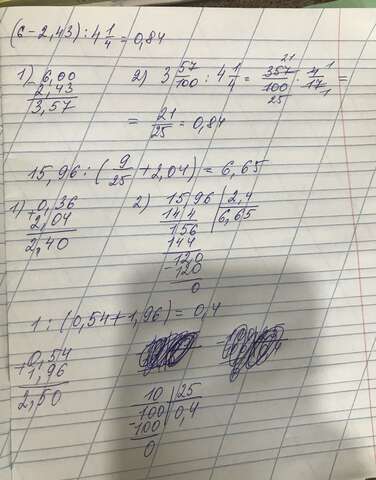 (6-2,43):4 1/4=0,84
1) 6,00
2,43
3,57
2) 3 57/100 : 4 1/4 = 357/100 · 4/17 =
21
25
1
1
= 21/25 = 0,84
15,96:(9/25+2,04)=6,65
1) 0,36
+2,04
2,40
2) 15,96 | 2,4
144 | 6,65
156
144
120
-120
0
1:(0,54+1,96)=0,4
+0,54
1,96
2,50
10 | 25
-100 | 0,4
100
0